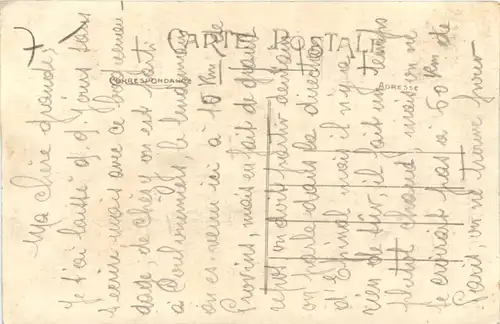 CARTE POSTALE
CORRESPONDANCE
ADRESSE
Ma chère grande,
Je t'ai laissé q.q. jours sans
t'écrire mais avec ce
de chez on est parti
à Coulommiers, le lendemain
on est venu ici à 10 Km de
Provins, mais en fait de grand
repos on doit partir demain
on parle dans la direction
d'Epinal mais il n'y a
rien de sûr, il fait un temps
plutôt chaud, mais on ne
se croirait pas à 60 Km de
Paris, on ne trouve pour